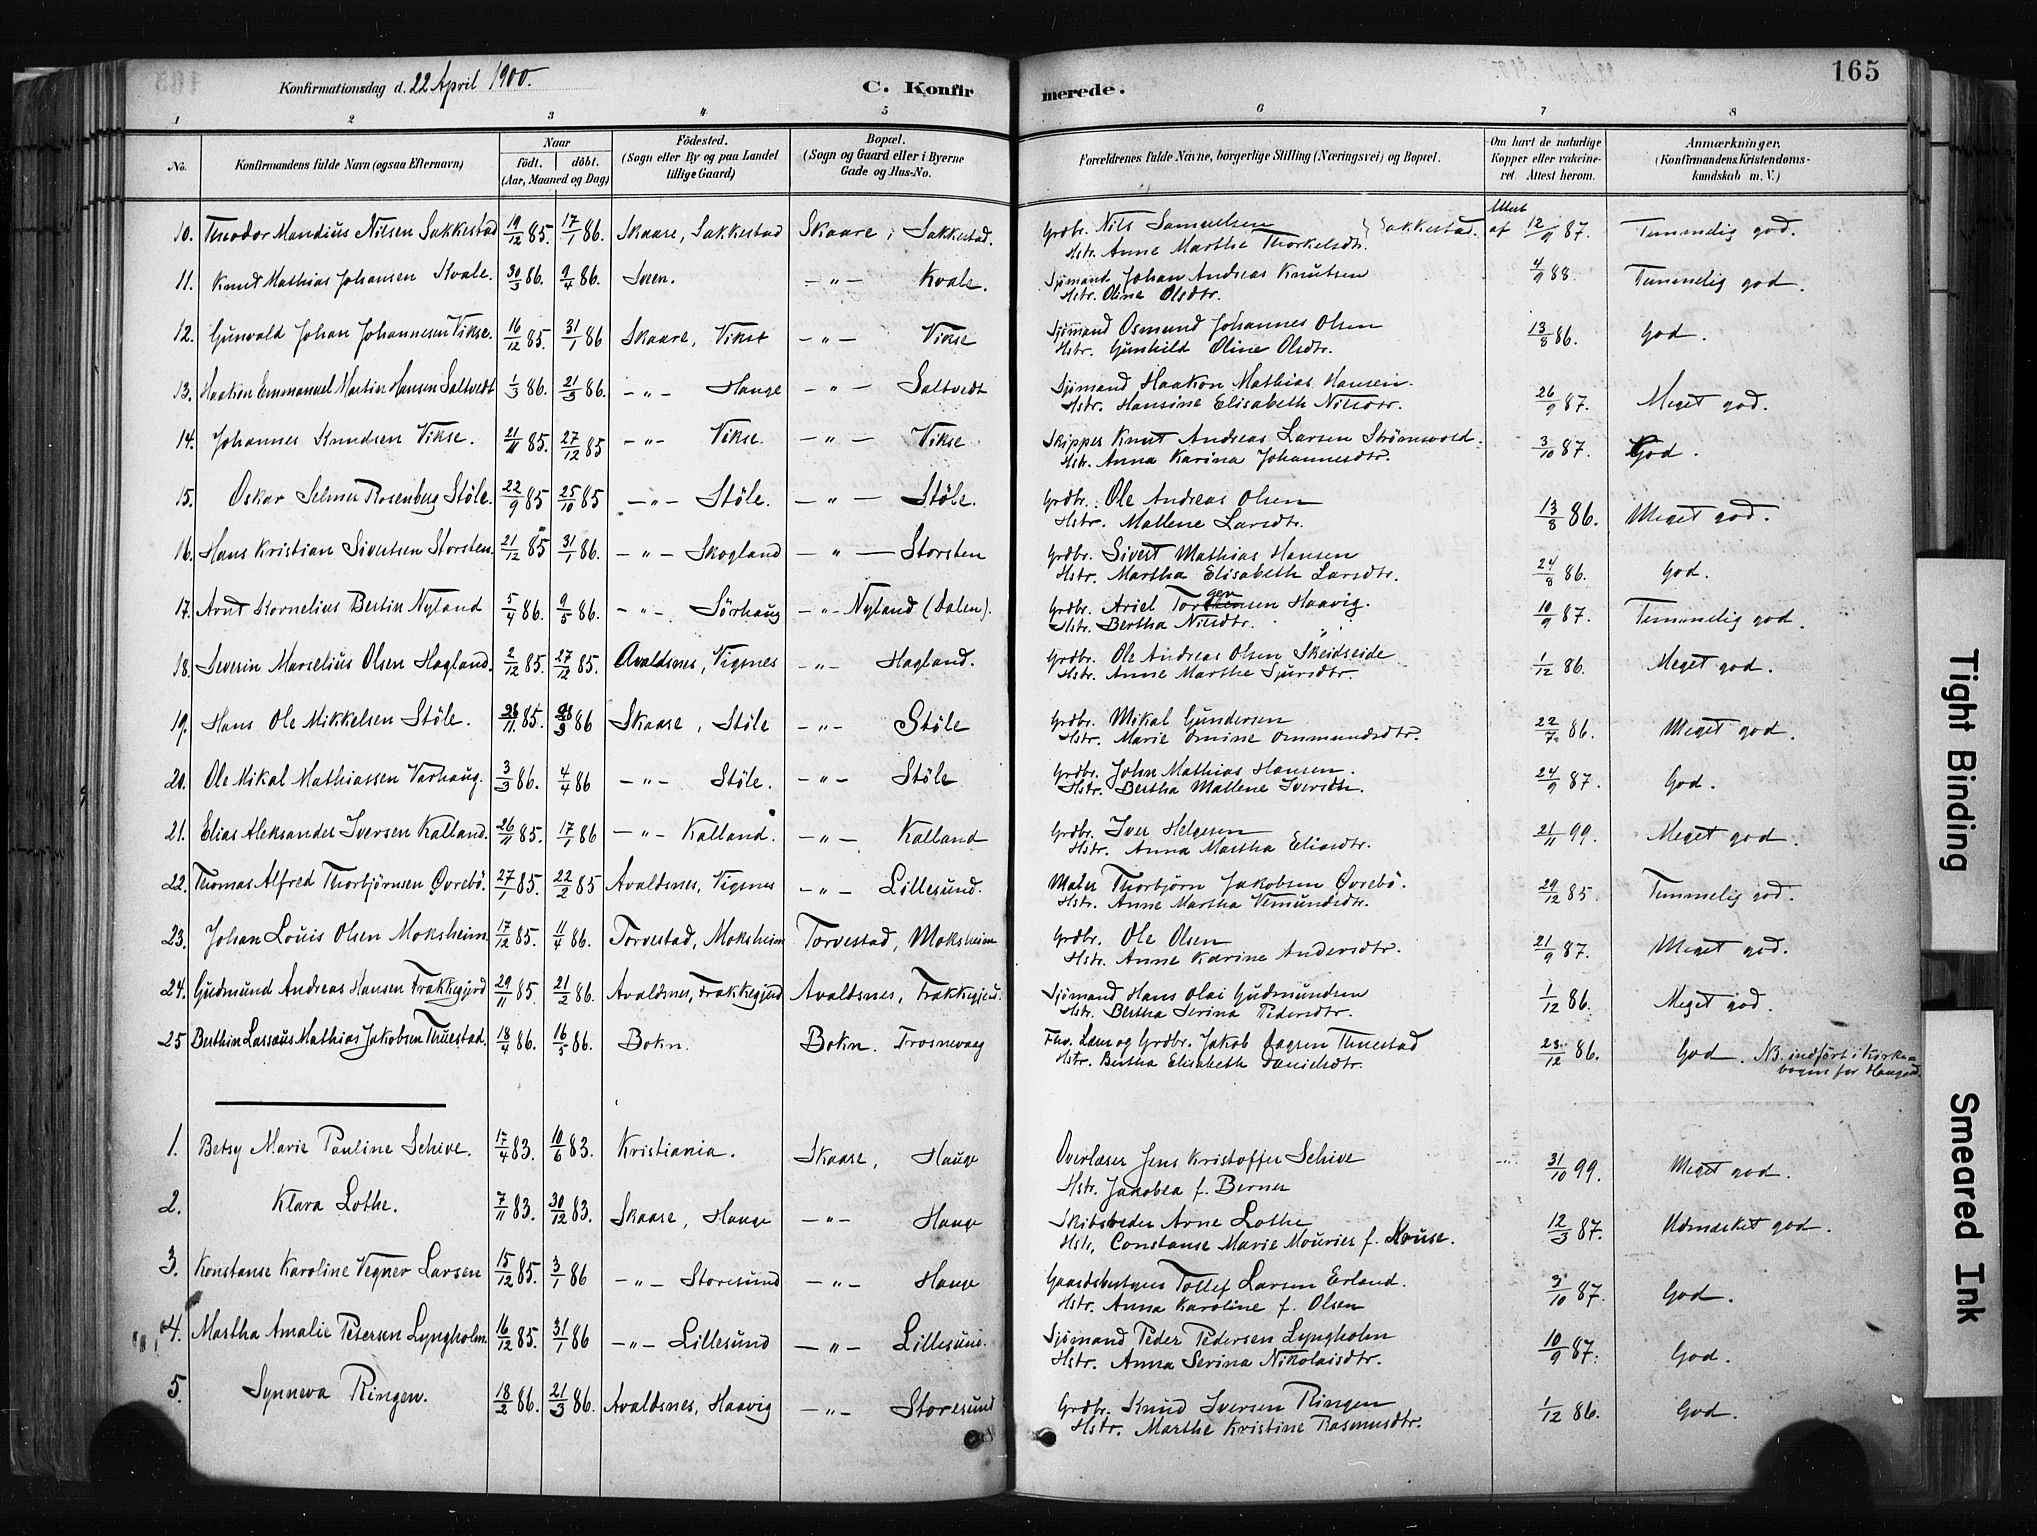 Konfirmationsdag d. 22 April 1900.
C. Konfirmerede.
165
1 2 3 4 5 6 7 8
No. Konfirmandens fulde Navn (ogsaa Efternavn) Naar födt. döbt. (Aar, Maaned og Dag) Födested. (Sogn eller By og paa Landet tillige Gaard) Bopæl. (Sogn og Gaard eller i Byerne Gade og Hus-No. Forældrenes fulde Navne, borgerlige Stilling (Næringsvei) og Bopæl. Om havt de naturlige Kopper eller vakcineret. Attest herom. Anmærkninger. (Konfirmandens Kristendomskundskab m. V.)
10. Theodor Mandius Nilsen Sakkestad 19/12 85. 17/1 86. Skaare, Sakkestad Skaare, Sakkestad. Grdbr. Nils Samuelsen Hstr. Anne Marthe Thorkelsdtr. } Sakkestad. Attest af 12/9 87. Temmelig god.
11. Knut Mathias Johansen Kvale. 30/3 86. 9/4 86. Sveen. -"- Kvale. Sjömand Johan Andreas Knutsen Hstr. Oline Olsdtr. 4/9 88. Temmelig god.
12. Gunvald Johan Johannesen Vikse. 16/12 85. 31/1 86 Skaare, Vikse -"- Vikse Sjömand Osmund Johannes Olsen Hstr. Gunhild Oline Olsdtr. 13/8 86. God.
13. Haakon Emmanuel Martin Hansen Saltvedt 1/3 86. 21/3 86. -"- Hauge -"- Saltvedt Sjömand Haakon Mathias Hansen. Hstr. Hansine Elisabeth Nilsdtr. 26/9 87. Meget god.
14. Johannes Knudsen Vikse. 21/11 85. 27/12 85 -"- Vikse. -"- Vikse. Skipper Knut Andreas Larsen Strömsvold. Hstr. Anna Karina Johannesdtr. 3/10 87. God.
15. Oskar Selmer Rosenberg Stöle. 22/9 85 25/10 85 -"- Stöle. -"- Stöle. Grdbr. Ole Andreas Olsen Hstr. Mallene Larsdtr. 13/8 86. Meget god.
16. Hans Kristian Sivertsen Storsten. 21/12 85 31/1 86. -"- Skogland -"- Storsten Grdbr. Sivert Mathias Hansen Hstr. Martha Elisabeth Larsdtr. 24/8 86. God.
17. Arnt Kornelius Bertin Nyland 5/4 86. 9/5 86. -"- Sörhaug -"- Nyland (Dalen). Grdbr. Ariel Torgensen Haavig. Hstr. Bertha Nilsdtr. 10/9 87. Temmelig god.
18. Severin Marselius Olsen Hagland. 2/12 85. 27/12 85. Avaldsnes, Vigsnes -"- Hagland. Grdbr. Ole Andreas Olsen Skeidseide Hstr. Anne Marthe Sjursdtr. 1/12 86. Meget god.
19. Hans Ole Mikkelsen Stöle. 26/11 85. 3 86 Skaare, Stöle -"- Stöle Grdbr. Mikal Gundersen Hstr. Marie Ommundsdtr. 22/7 86. Meget god.
20. Ole Mikal Mathiassen Varhaug. 3/3 86. 4/4 86 -"- Stöle. -"- Stöle Grdbr. John Mathias Hansen. Hstr. Bertha Mallene Iversdtr. 24/9 87. God.
21. Elias Aleksander Iversen Kalland. 26/11 85. 17/1 86 -"- Kalland. -"- Kalland Grdbr. Iver Helgesen Hstr. Anna Martha Eliasdtr. 21/11 99. Meget god.
22. Thomas Alfred Thorbjörnsen Øvrebö. 27/1 85. 22/2 85 Avaldsnes, Vigsnes -"- Lillesund. Maler Thorbjörn Jakobsen Øvrebö. Hstr. Anne Martha Vemundsdtr. 29/12 85. Temmelig god.
23. Johan Louis Olsen Moksheim. 17/12 85. 11/4 86. Torvestad, Moksheim Torvestad, Moksheim Grdbr. Ole Olsen Hstr. Anne Karine Andersdtr. 21/9 87. Meget god.
24. Gudmund Andreas Hansen Frakkegjerd 29/11 85. 21/2 86. Avaldsnes, Frakkegjerd Avaldsnes, Frakkegjerd. Sjömand Hans Olai Gudmundsen Hstr. Bertha Serina Pedersdtr. 1/12 86. Meget god.
25 Berthin Lassaus Mathias Jakobsen Thuestad. 18/4 86. 16/5 86. Bokn. Bokn. Trosnevaag Fhv. Læns og Grdbr. Jakob Aagsen Thuestad Hstr. Bertha Elisabeth Danielsdtr. 23/12 86. God. NB. indført i Kirkebogen for Haugesd.
1. Betsy Marie Pauline Schive. 17/4 83. 10/6 83. Kristiania. Skaare, Hauge Overlærer Jens Kristoffer Schive Hstr. Jakobea f. Berner 31/10 99. Meget god.
2. Klara Lothe. 7/11 83. 30/12 83. Skaare, Hauge -"- Hauge Skibsreder Arne Lothe Hstr, Constanse Marie Mourier f. Kruse. 12/3 87. Udmærket god.
3. Konstanse Karoline Vegner Larsen 15/12 85. 3/1 86 -"- Storesund -"- Hauge Gaardsbestyrer Tollef Larsen Erland. Hstr. Anna Karoline f. Olsen 3/10 87. God.
4. Martha Amalie Petersen Lyngholm. 16/12 85. 31/1 86 -"- Lillesund -"- Lillesund. Sjömand Peder Pedersen Lyngholm Hstr. Anna Serina Nikolaisdtr. 10/9 87. God.
5. Synneva Ringen. 18/2 86. 21/3 86. Avaldsnes, Haavig -"- Storesund Grdbr. Knud Iversen Ringen Hstr. Marthe Kristine Rasmusdtr. 1/12 86. God.
Tight Binding
Smeared Ink